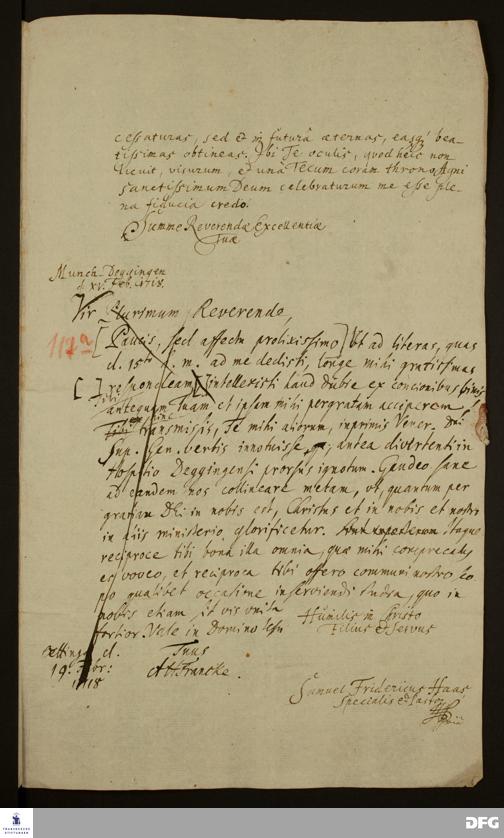 cessaturas, sed & in futurâ aeternas, easq́ bea-
tissimas obtineas. Ibi Te oculis, quod heic non
licuit, visurum, et unà Tecum coram throno Agni
sanctissimum Deum celebraturum me esse ple-
na fiducia credo.
Summe Reverendae Excellentiae
Tuae
Münch-Deggingen
d. XV. Feb. 1718.
Vir Plurimum Reverende,
117a
[Paucis, sed affectu prolixissimo] Ut ad literas, quas
d. 15th h. m. ad me dedisti, longe mihi gratissimas
[ ] respondeam [ ] intellexisti haud dubie ex concionibus
antequam Tuam et ipsam mihi pergratam acciperem
Tibi transmissis, Te mihi aliorum, inprimis Vener. Dn.
Sup. Gen. verbis innotuisse, antea divertenti in
Hospitio Deggingensi prorsus ignotum. Gaudeo sane
ad eandem nos collineare metam, ut, quantum per
gratiam Dei in nobis est, Christus et in nobis et nostro
in aliis ministerio glorificetur. Itaque
reciproce tibi bona illa omnia, quae mihi comprecatus
es, voveo, et reciproca tibi offero communi nostro
qualibet occasione inserviendi studia, quo in
nobis etiam sit vis unita
fortior. Vale in Domino Jesu
Humilis in Christo
Filius & Servus
Öttingae d.
19. Febr:
1718
Tuus
AHFrancke.
Samuel Fridericus Haas
Specialis & Pastor